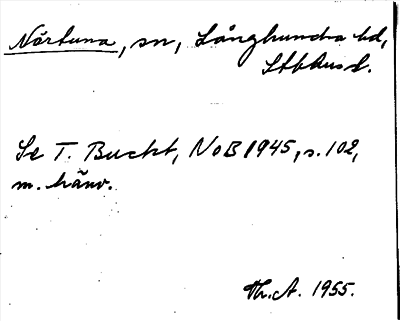 Närtuna, sn, Långhundra hd,
Sthlms l.
Se T. Bucht, NoB 1945, s. 102,
m. hänv.
Th. A. 1955.